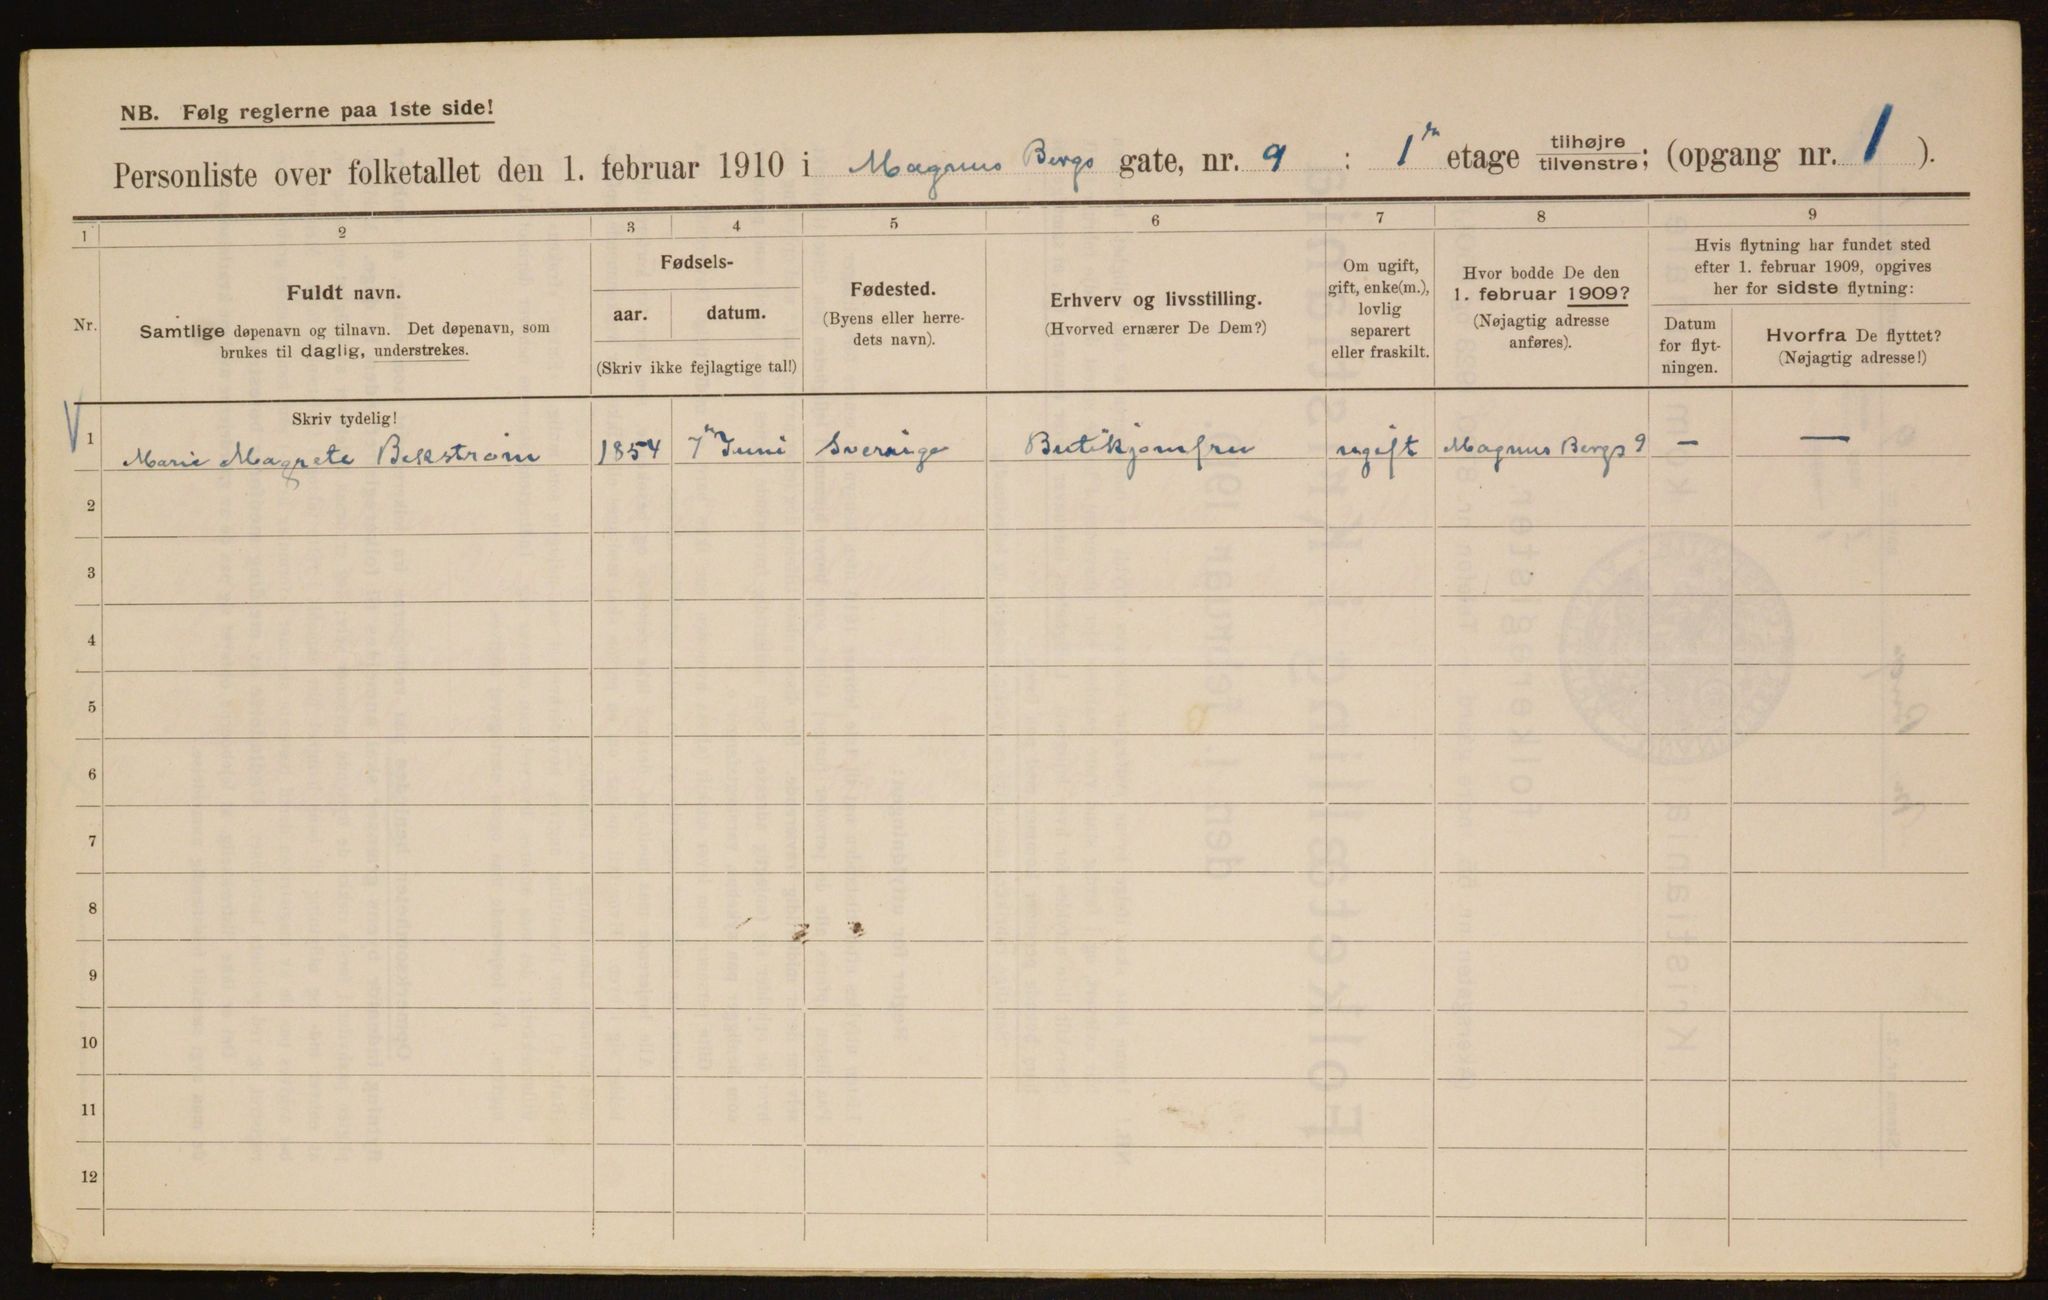 NB. Følg reglerne paa 1ste side!
Personliste over folketallet den 1. februar 1910 i Magnus Bergs gate, nr. 9 : 1ste etage tilhøjre tilvenstre; (opgang nr. 1 ).
1 2 3 4 5 6 7 8 9
Nr.
Fuldt navn.
Samtlige døpenavn og tilnavn. Det døpenavn, som
brukes til daglig, understrekes.
Fødsels-
aar. datum.
(Skriv ikke fejlagtige tal!)
Fødested.
(Byens eller herre-
dets navn).
Erhverv og livsstilling.
(Hvorved ernærer De Dem?)
Om ugift,
gift, enke(m.),
lovlig
separert
eller fraskilt.
Hvor bodde De den
1. februar 1909?
(Nøjagtig adresse
anføres).
Hvis flytning har fundet sted
efter 1. februar 1909, opgives
her for sidste flytning:
Datum
for flyt-
ningen.
Hvorfra De flyttet?
(Nøjagtig adresse!)
Skriv tydelig!
1 Marie Magrete Bekstrøm 1854 7de Juni Sverrige Butikjomfru ugift Magnus Bergs 9 — —
2
3
4
5
6
7
8
9
10
11
12